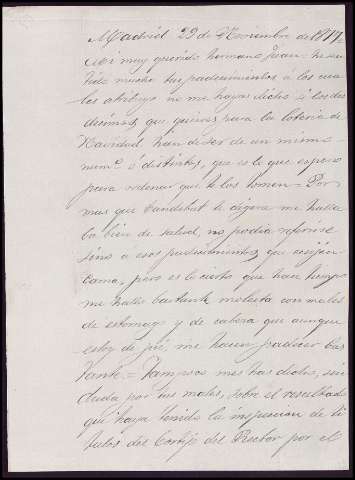 Madrid 29 de Noviembre de 1877=
Mi muy querido hermano Juan= he sen-
tido mucho tus padecimientos a los cua-
les atribuyo no me hayas dicho si los dos
decimos, que quieres para la loteria de
Navidad han de ser de un mismo
num.o ó distintos, que es lo que espero
para ordenar que te los tomen= Por
mas que te dijera me halla
ba bien de salud, no podia referirse
sino a esos padecimientos, que exijen
cama, pero es lo cierto que hace tiempo
me hallo bastante molesta con males
de estomago y de cabeza que aunque
estoy de pié, me hacen padecer bas
tante= Tampoco me has dicho, sin
duda por tus males, sobre el resultado
que haya tenido la inspeccion de ti
tulos del Cortijo del Rector por el